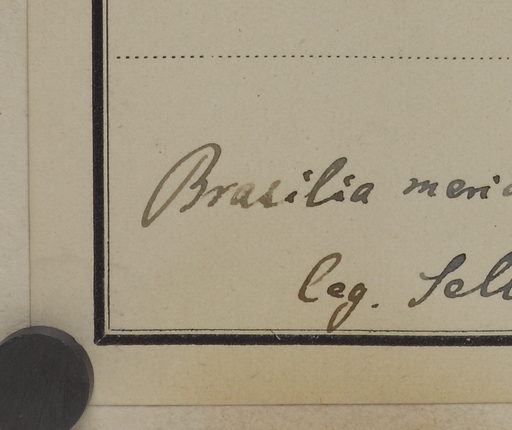 Brasilia meri
leg. Sell